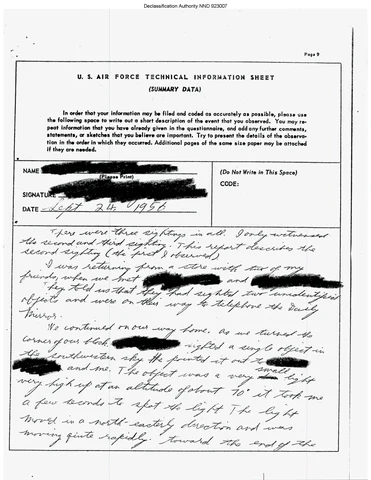 Declassification Authority NND 923007
Page 9
U. S. AIR FORCE TECHNICAL INFORMATION SHEET
(SUMMARY DATA)
In order that your information may be filed and coded as accurately as possible, please use
the following space to write out a short description of the event that you observed. You may re-
peat information that you have already given in the questionnaire, and add any further comments,
statements, or sketches that you believe are important. Try to present the details of the observa-
tion in the order in which they occurred. Additional pages of the same size paper may be attached
if they are needed.
NAME
(Please Print)
SIGNATURE
DATE Sept 24 1956
(Do Not Write in This Space)
CODE:
There were three sightings in all. I only witnessed
the second and third sighting. This report describes the
second sighting (the first I observed)
I was returning from a store with two of my
friends, when we met and
They told us that they had sighted two unidentified
objects and were on their way to telephone the Daily
Mirror.
We continued on our way home. As we turned the
corner of our block, sighted a single object in
the southwestern sky. He pointed it out to
and me. The object was a very small light
very high up at an altitude of about 70° it took me
a few seconds to spot the light The light
moved in a north-easterly direction and was
moving quite rapidly. toward the end of the